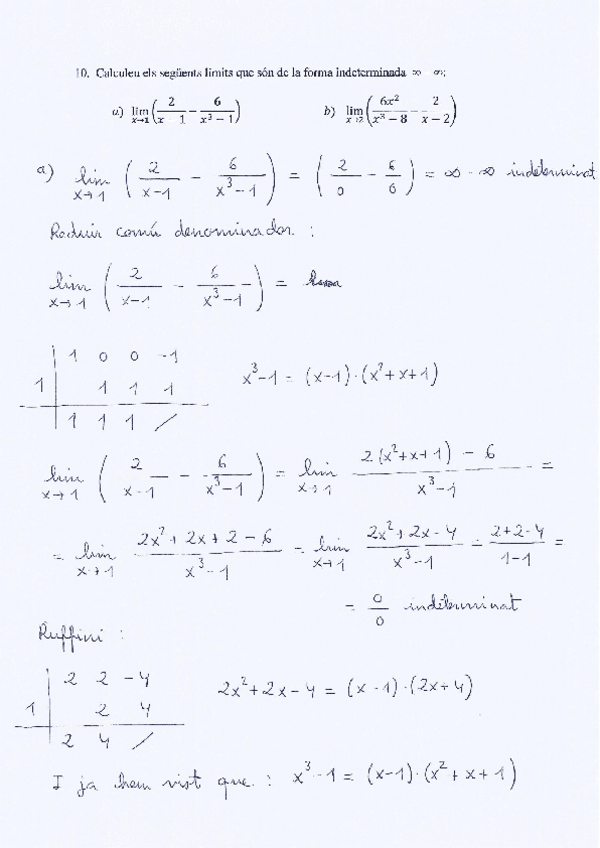 10. Calculeu els següents límits que són de la forma indeterminada ∞ - ∞:
a) lim x→1 (2/(x - 1) - 6/(x³ - 1)) b) lim x→2 (6x²/(x³ - 8) - 2/(x - 2))
a) lim x→1 (2/(x-1) - 6/(x³-1)) = (2/0 - 6/0) = ∞ - ∞ indeterminat
Reduir comú denominador :
lim x→1 (2/(x-1) - 6/(x³-1)) =
1 0 0 -1
1 1 1 1 x³-1 = (x-1)·(x²+x+1)
1 1 1 /
lim x→1 (2/(x-1) - 6/(x³-1)) = lim x→1 (2(x²+x+1) - 6)/(x³-1) =
= lim x→1 (2x²+2x+2-6)/(x³-1) = lim x→1 (2x²+2x-4)/(x³-1) = (2+2-4)/(1-1) =
= 0/0 indeterminat
Ruffini :
2 2 -4
1 2 4 2x²+2x-4 = (x-1)·(2x+4)
2 4 /
I ja hem vist que : x³-1 = (x-1)·(x²+x+1)